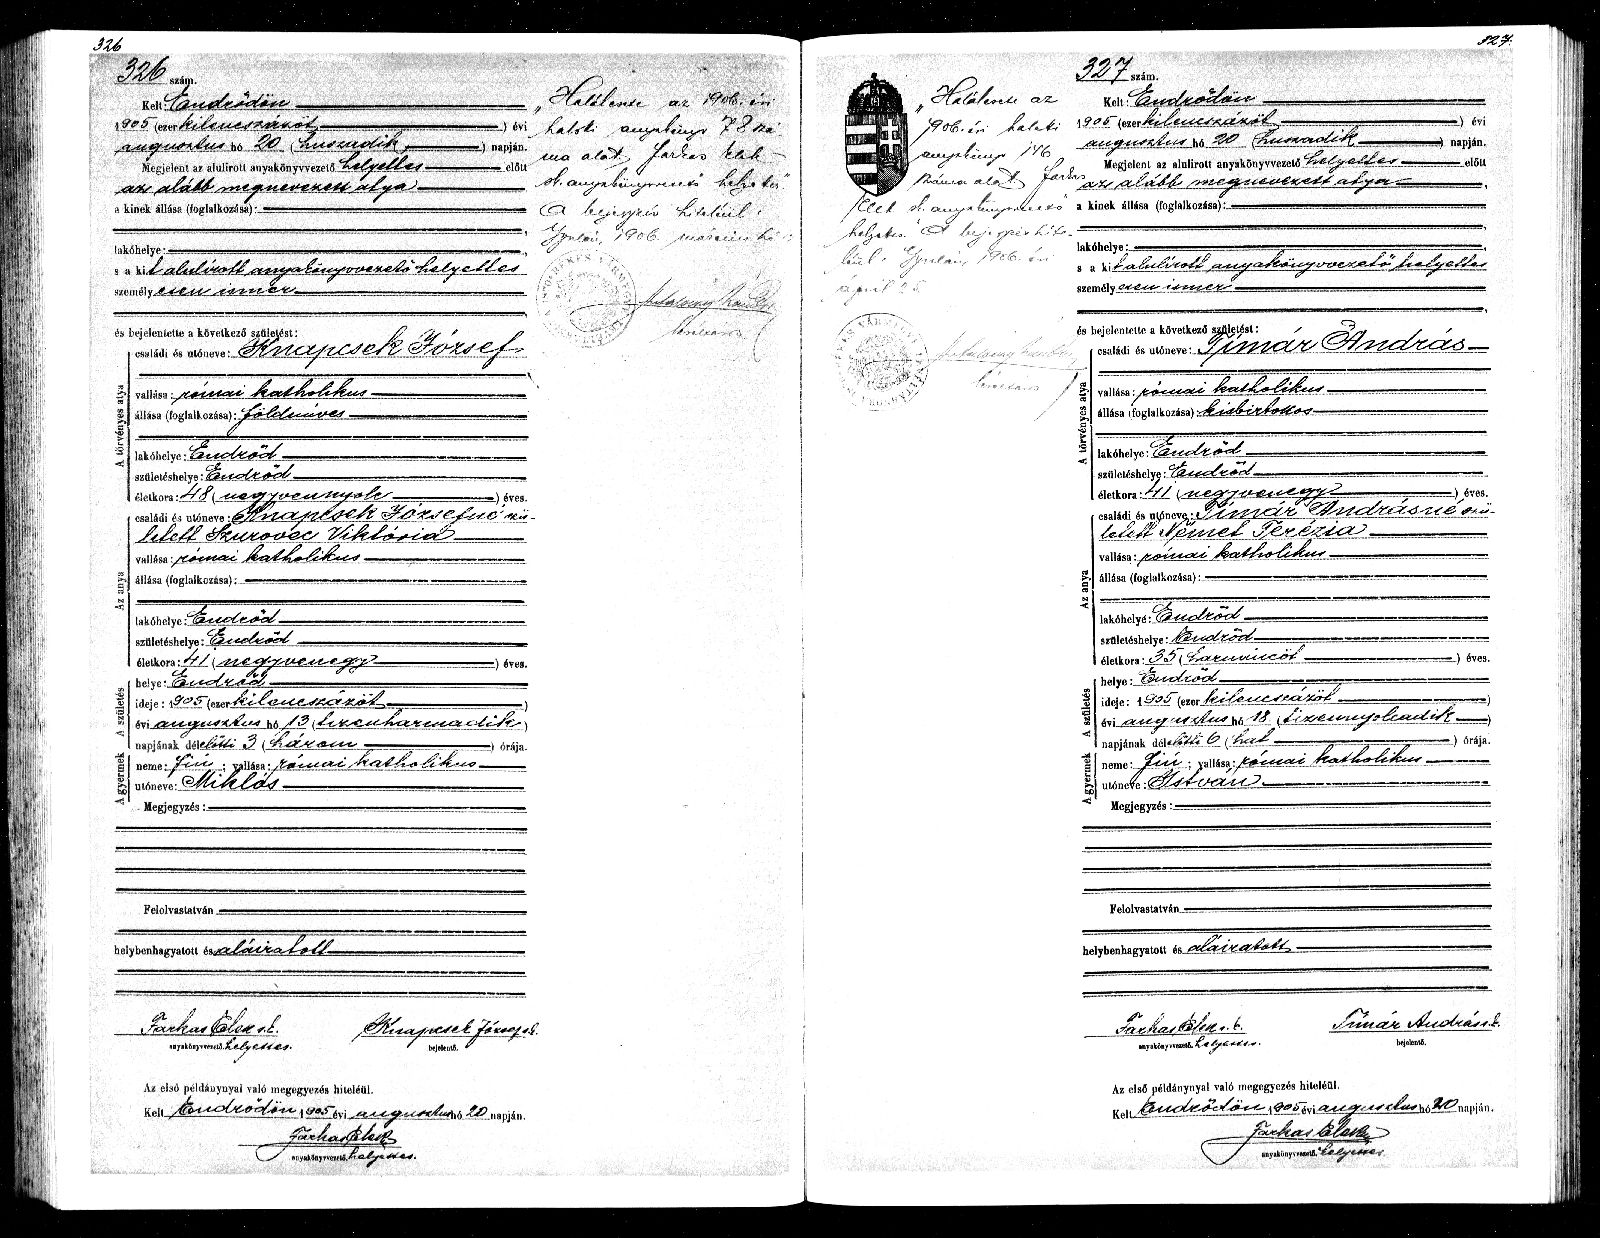 326
326 szám.
Kelt: Endrődön
1905 (ezer kilencszázöt) évi
augusztus hó 20 (huszadik) napján.
Megjelent az alulirott anyakönyvvezető helyettes előtt
az alább megnevezett atya
a kinek állása (foglalkozása):
lakóhelye:
s a kit alulirott anyakönyvvezető helyettes
személyesen ismer
és bejelentette a következő születést:
A törvényes atya
családi és utóneve: Knapcsek József
vallása: római katholikus
állása (foglalkozása): földmíves
lakóhelye: Endrőd
születéshelye: Endrőd
életkora: 48 (negyvennyolc) éves.
Az anya
családi és utóneve: Knapcsek Józsefné szü-
letett Szurovec Viktória
vallása: római katholikus
állása (foglalkozása):
lakóhelye: Endrőd
születéshelye: Endrőd
életkora: 41 (negyvenegy) éves.
A születés
helye: Endrőd
ideje: 1905 (ezer kilencszázöt)
évi augusztus hó 13 (tizenharmadik)
napjának délelőtti 3 (három) órája.
A gyermek
neme: fiú; vallása: római katholikus
utóneve: Miklós
Megjegyzés:
Felolvastatván
helybenhagyatott és aláiratott
Farkas Elek s. k. Knapcsek József s. k.
anyakönyvvezető. helyettes. bejelentő.
Az első példánynyal való megegyezés hiteléül.
Kelt Endrődön 1905 évi augusztus hó 20 napján.
Farkas Elek
anyakönyvvezető. helyettes.
„Halálesete az 1906. évi
halotti anyakönyv 78 szá
ma alatt, Farkas Elek
s. k. anyakönyvvezető helyettes"
A bejegyzés hiteléül:
Gyulán, 1906. március hó
327.
327 szám.
Kelt: Endrődön
1905 (ezer kilencszázöt) évi
augusztus hó 20 (huszadik) napján.
Megjelent az alulirott anyakönyvvezető helyettes előtt
az alább megnevezett atya
a kinek állása (foglalkozása):
lakóhelye:
s a kit alulirott anyakönyvvezető helyettes
személyesen ismer
és bejelentette a következő születést:
A törvényes atya
családi és utóneve: Tímár András
vallása: római katholikus
állása (foglalkozása): kisbirtokos
lakóhelye: Endrőd
születéshelye: Endrőd
életkora: 41 (negyvenegy) éves.
Az anya
családi és utóneve: Tímár Andrásné szü-
letett Német Terézia
vallása: római katholikus
állása (foglalkozása):
lakóhelye: Endrőd
születéshelye: Endrőd
életkora: 35 (harmincöt) éves.
A születés
helye: Endrőd
ideje: 1905 (ezer kilencszázöt)
évi augusztus hó 18 (tizennyolcadik)
napjának délelőtti 6 (hat) órája.
A gyermek
neme: fiú; vallása: római katholikus
utóneve: István
Megjegyzés:
Felolvastatván
helybenhagyatott és aláiratott
Farkas Elek s. k. Tímár András s. k.
anyakönyvvezető. helyettes. bejelentő.
Az első példánynyal való megegyezés hiteléül.
Kelt Endrődön 1905 évi augusztus hó 20 napján.
Farkas Elek
anyakönyvvezető. helyettes.
„Halálesete az
1906. évi halotti
anyakönyv 146
száma alatt, Farkas
Elek s. k. anyakönyvvezető
helyettes. A bejegyzés hite-
léül: Gyulán, 1906. évi
april 25